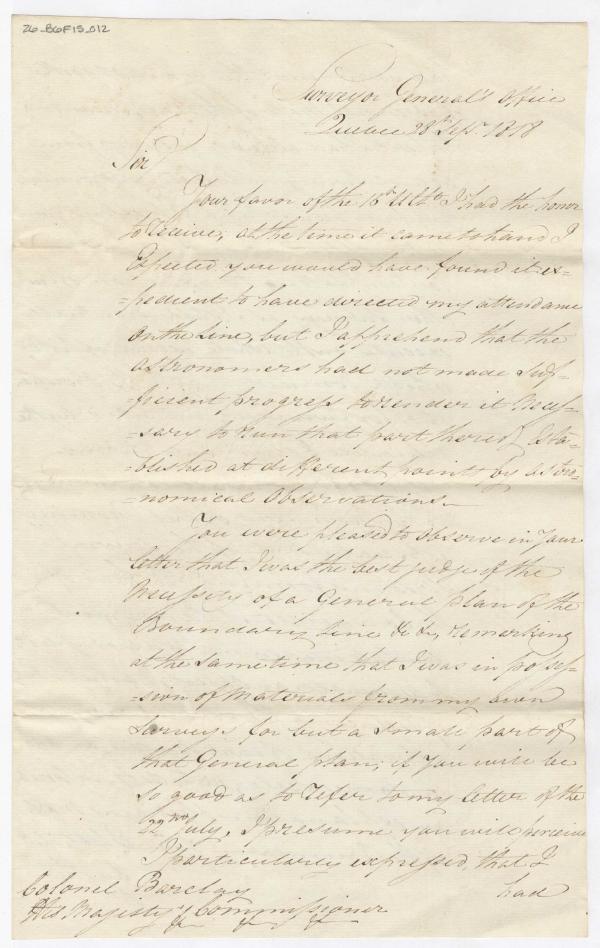 26_B6F15_012
Surveyor General's Office
Quebec 28th Sepr. 1818
Sir
Your favor of the 18th Ulto I had the honor
to receive, at the time it came to hand I
Expected you would have found it ex=
=pedient to have directed my attendance
on the Line, but I apprehend that the
astronomers had not made suf=
=ficient progress to render it neces=
=sary to run that part thereof Esta=
=blished at different points by astro=
=nomical observations.
You were pleased to observe in your
letter that I was the best judge of the
Necessity of a General plan of the
Boundary Line &c &c, remarking
at the same time that I was in posses=
=sion of Materials from my own
Surveys for but a small part of
that General plan; if you will be
so good as to refer to my letter of the
22nd July, I presume you will perceive
I particularly expressed, that I
had
Colonel Barclay
His Majesty's Commissioner
&c &c &c